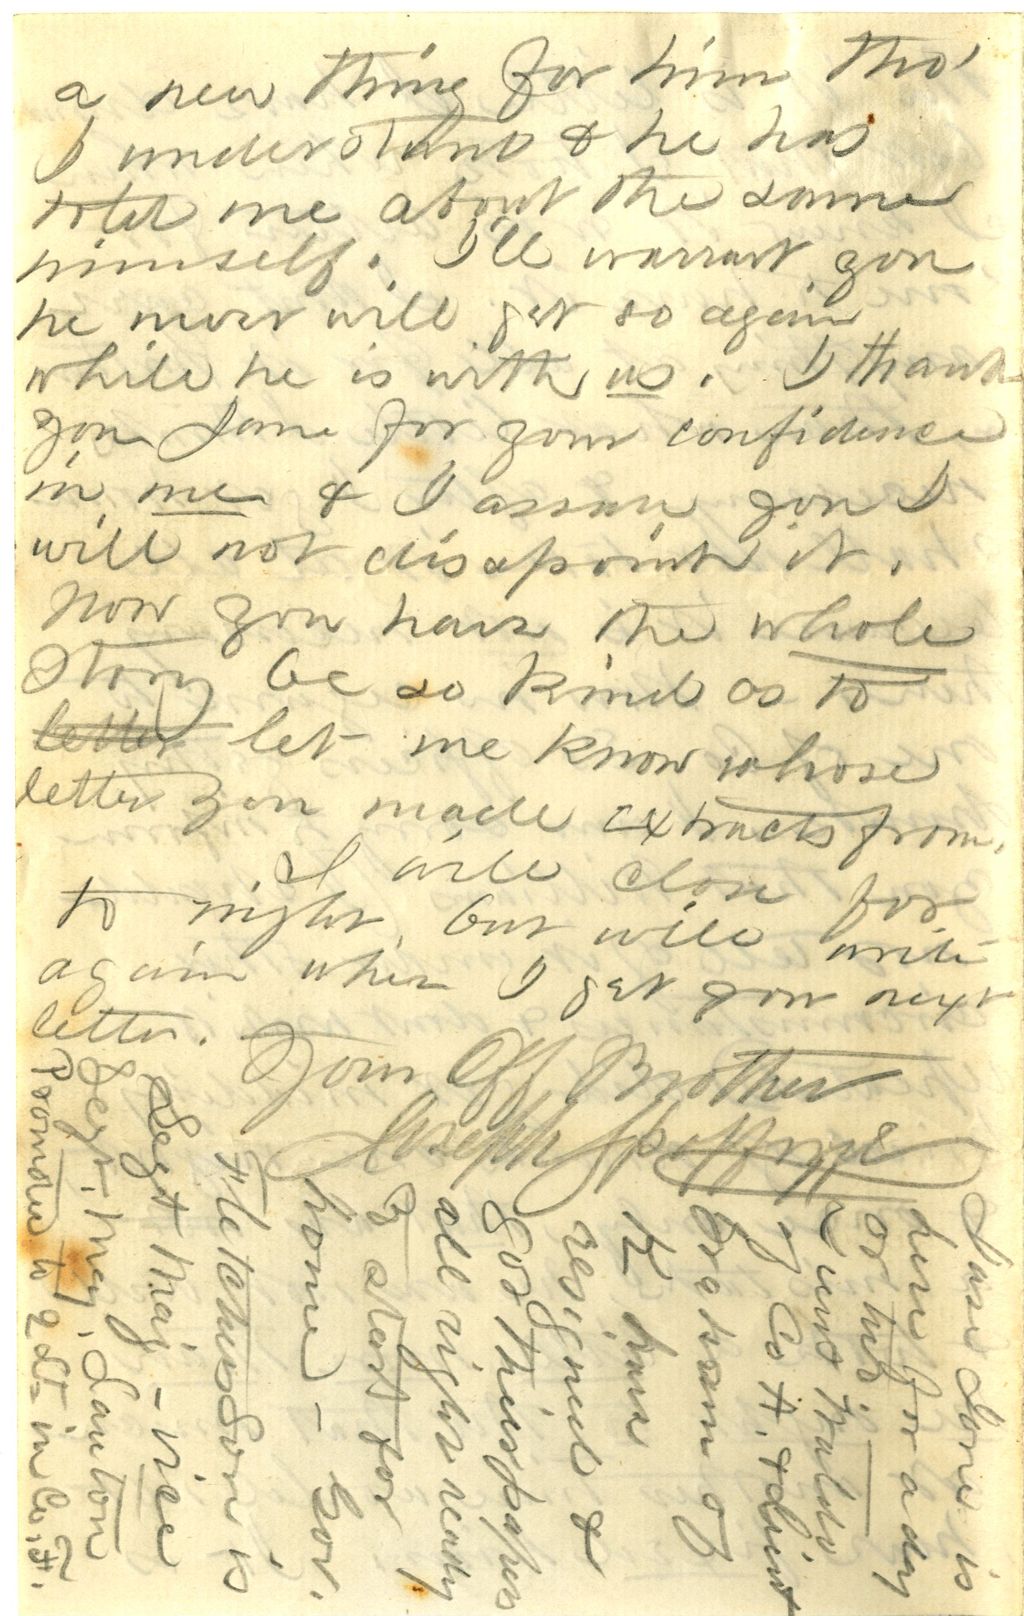 a new thing for him tho'
I understand & he has
told me about the same
himself. I'll warrant you
he never will get so again
while he is with us. I thank
you Jane for your confidence
in me & I assure you I
will not disapoint it.
Now you have the whole
story be so kind as to
letter let me know whose
letter you made extracts from.
I will close for
to night, but will write
again when I get your next
letter.
Your Aff Brother
Joseph Spofford
is
here for a day
or two.
Lieut
of Co A. & Lieut
of
K have
resigned &
got their papers
all right ready
to start for
home — Gov.
Hetchusson is
Segt Maj — vice
Segt. Maj. Lawton
Promoted to 2 Lt in Co. A.